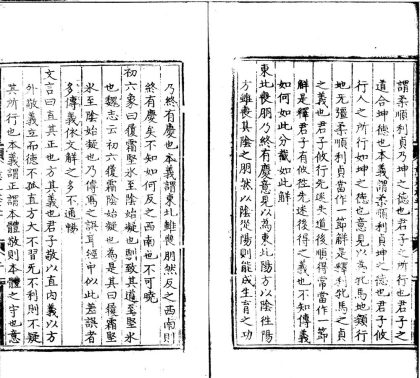 謂柔順利貞乃坤之德也君子之所行也君子之
道合坤德也本義謂柔順利貞坤之德也君子攸
行人之所行如坤之德也意見以為牝馬地類行
地无疆柔順利貞當作一節解是釋利牝馬之貞
之義也君子攸行先迷失道後順得常當作一節
解是釋君子有攸徃先迷後得之義也不知傳義
如何如此分截如此解
東北喪朋乃終有慶意見以為東北陽方以陰徃陽
方雖喪其陰之朋然以陰從陽則能成生育之功
乃終有慶也本義謂東北雖喪朋然反之西南則
終有慶矣不知如何反之西南也不可曉
初六象曰履霜堅氷陰始凝也馴致其道至堅氷
也魏志云初六履霜陰始凝也為是其曰履霜堅
氷至陰始凝也乃傳寫之誤耳經中似此差誤者
多傳義依文解之多不通暢
文言曰直其正也方其義也君子敬以直内義以方
外敬義立而德不孤直方大不習无不利則不疑
其所行也本義謂正謂本體敬則本體之守也意